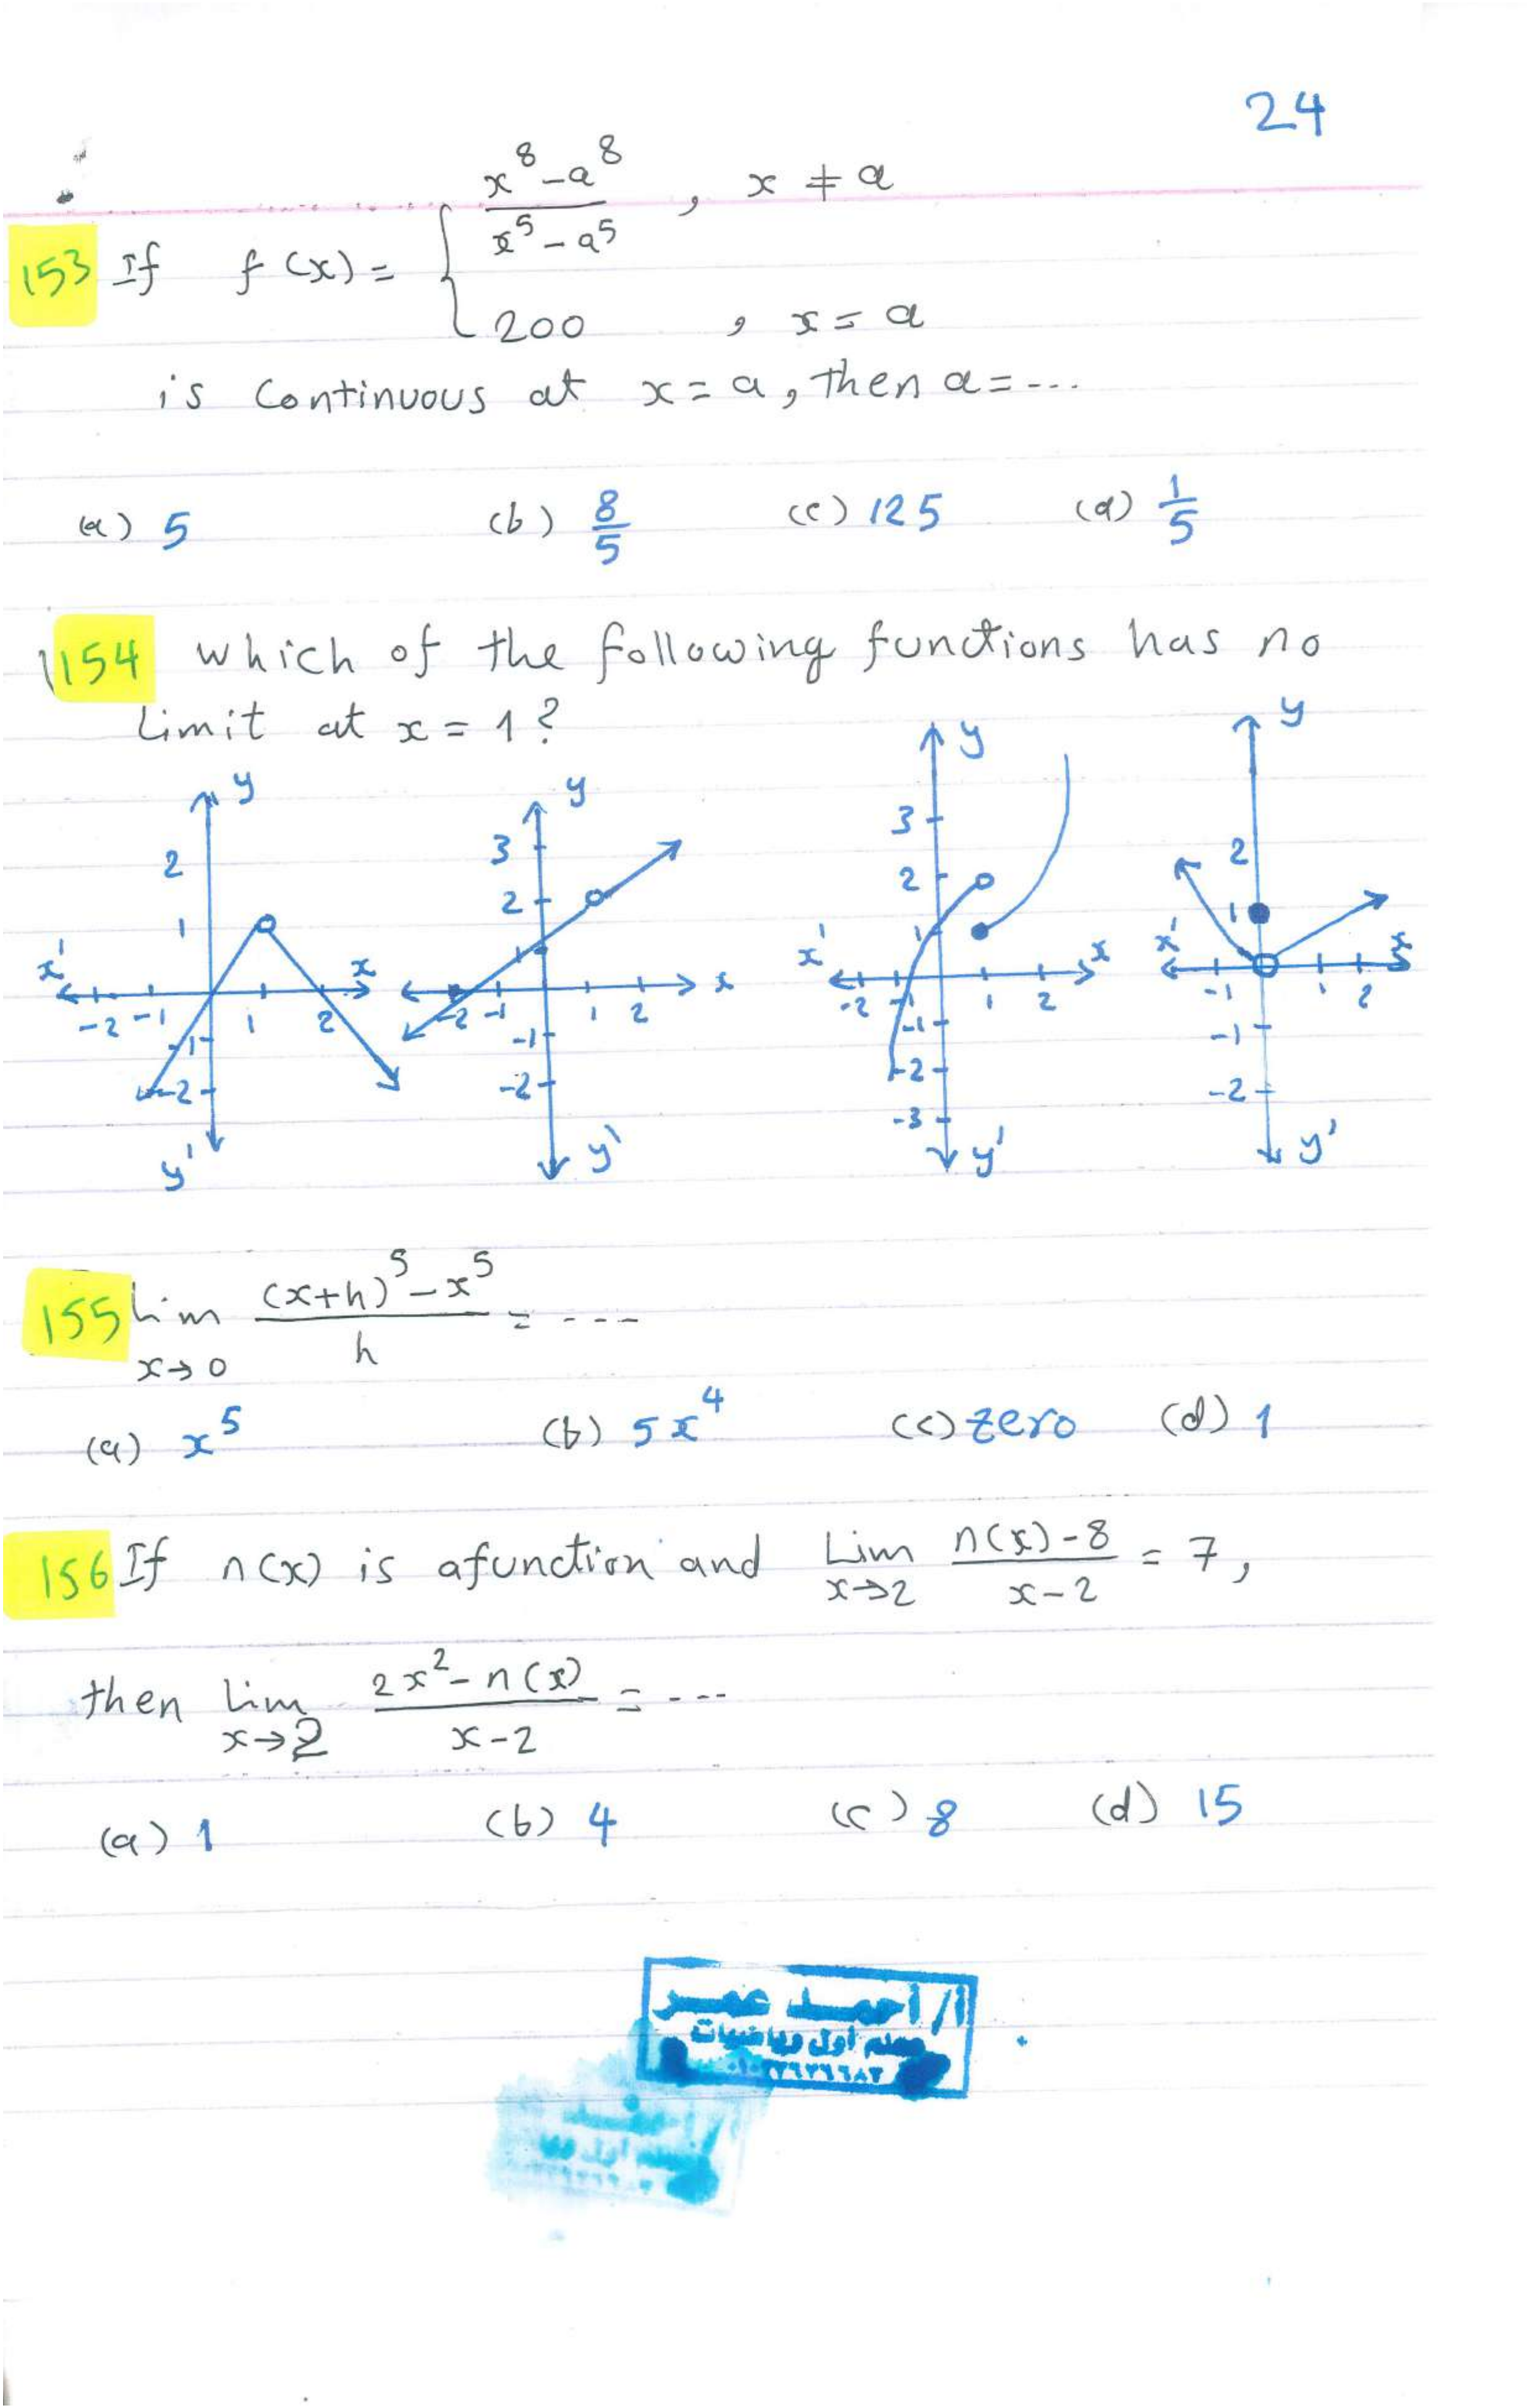 24
153 If f(x) = { x⁸-a⁸ / x⁵-a⁵ , x ≠ a
200 , x = a
is continuous at x = a, then a = ...
(a) 5 (b) 8/5 (c) 125 (d) 1/5
154 which of the following functions has no
Limit at x = 1?
y y y y
2 1 x' x -2 -1 1 2 -1 -2 y'
3 2 1 x -2 -1 1 2 -1 -2 y'
3 2 1 x' x -2 -1 1 2 -1 -2 -3 y'
2 1 x' x -1 1 2 -1 -2 y'
155 lim x→0 (x+h)⁵-x⁵ / h = ----
(a) x⁵ (b) 5x⁴ (c) zero (d) 1
156 If n(x) is afunction and Lim x→2 n(x)-8 / x-2 = 7,
then lim x→2 2x²-n(x) / x-2 = ----
(a) 1 (b) 4 (c) 8 (d) 15
أ/ أحمد عمر
معلم أول رياضيات